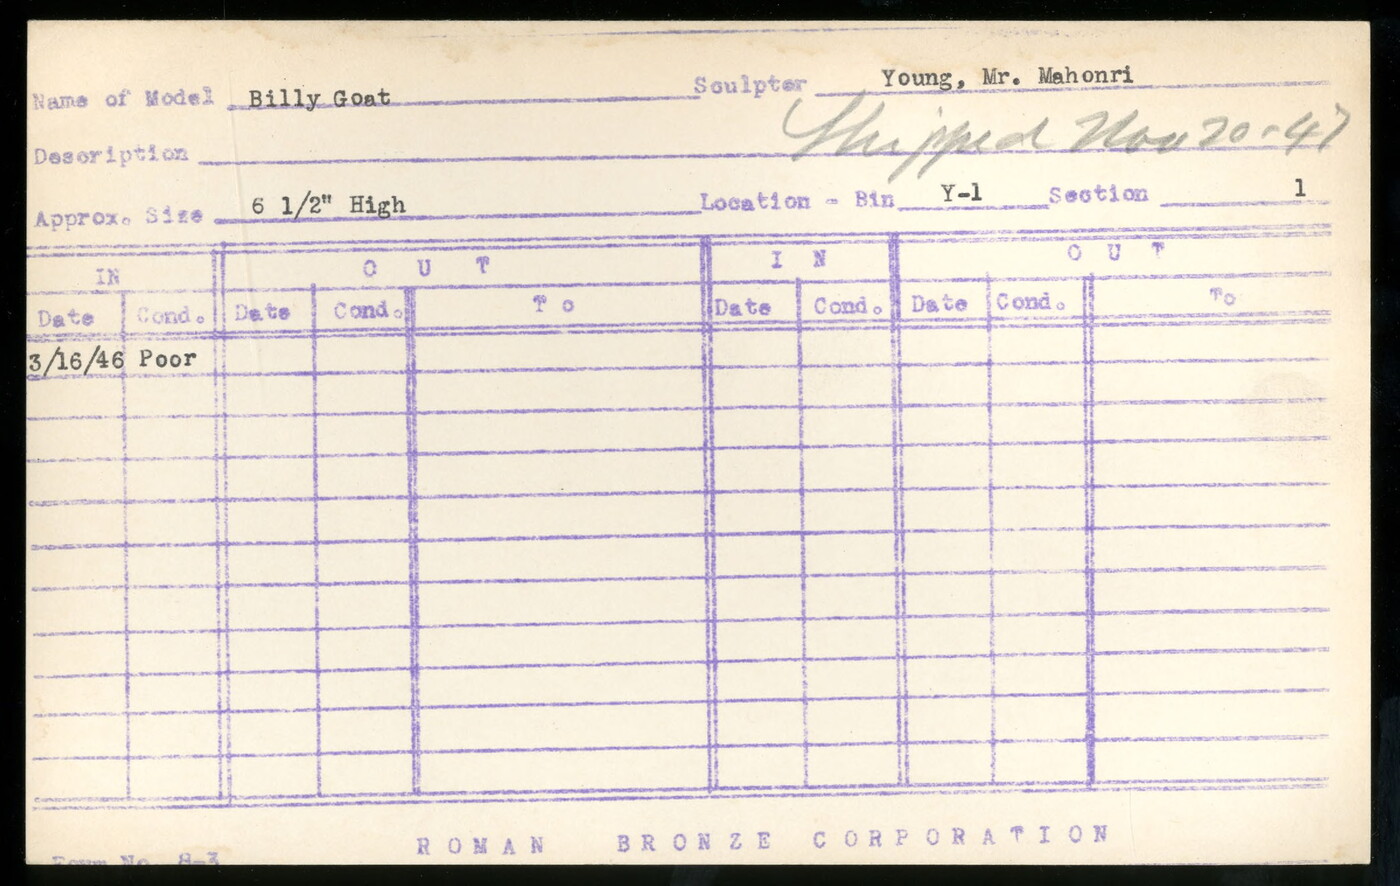 Name of Model Billy Goat Sculptor Young, Mr. Mahonri
Shipped Nov 20-47
Description
Approx. Size 6 1/2" High Location - Bin Y-1 Section 1
IN O U T I N O U T
Date Cond. Date Cond. To Date Cond. Date Cond. To
3/16/46 Poor
ROMAN BRONZE CORPORATION
Form No. 8-3